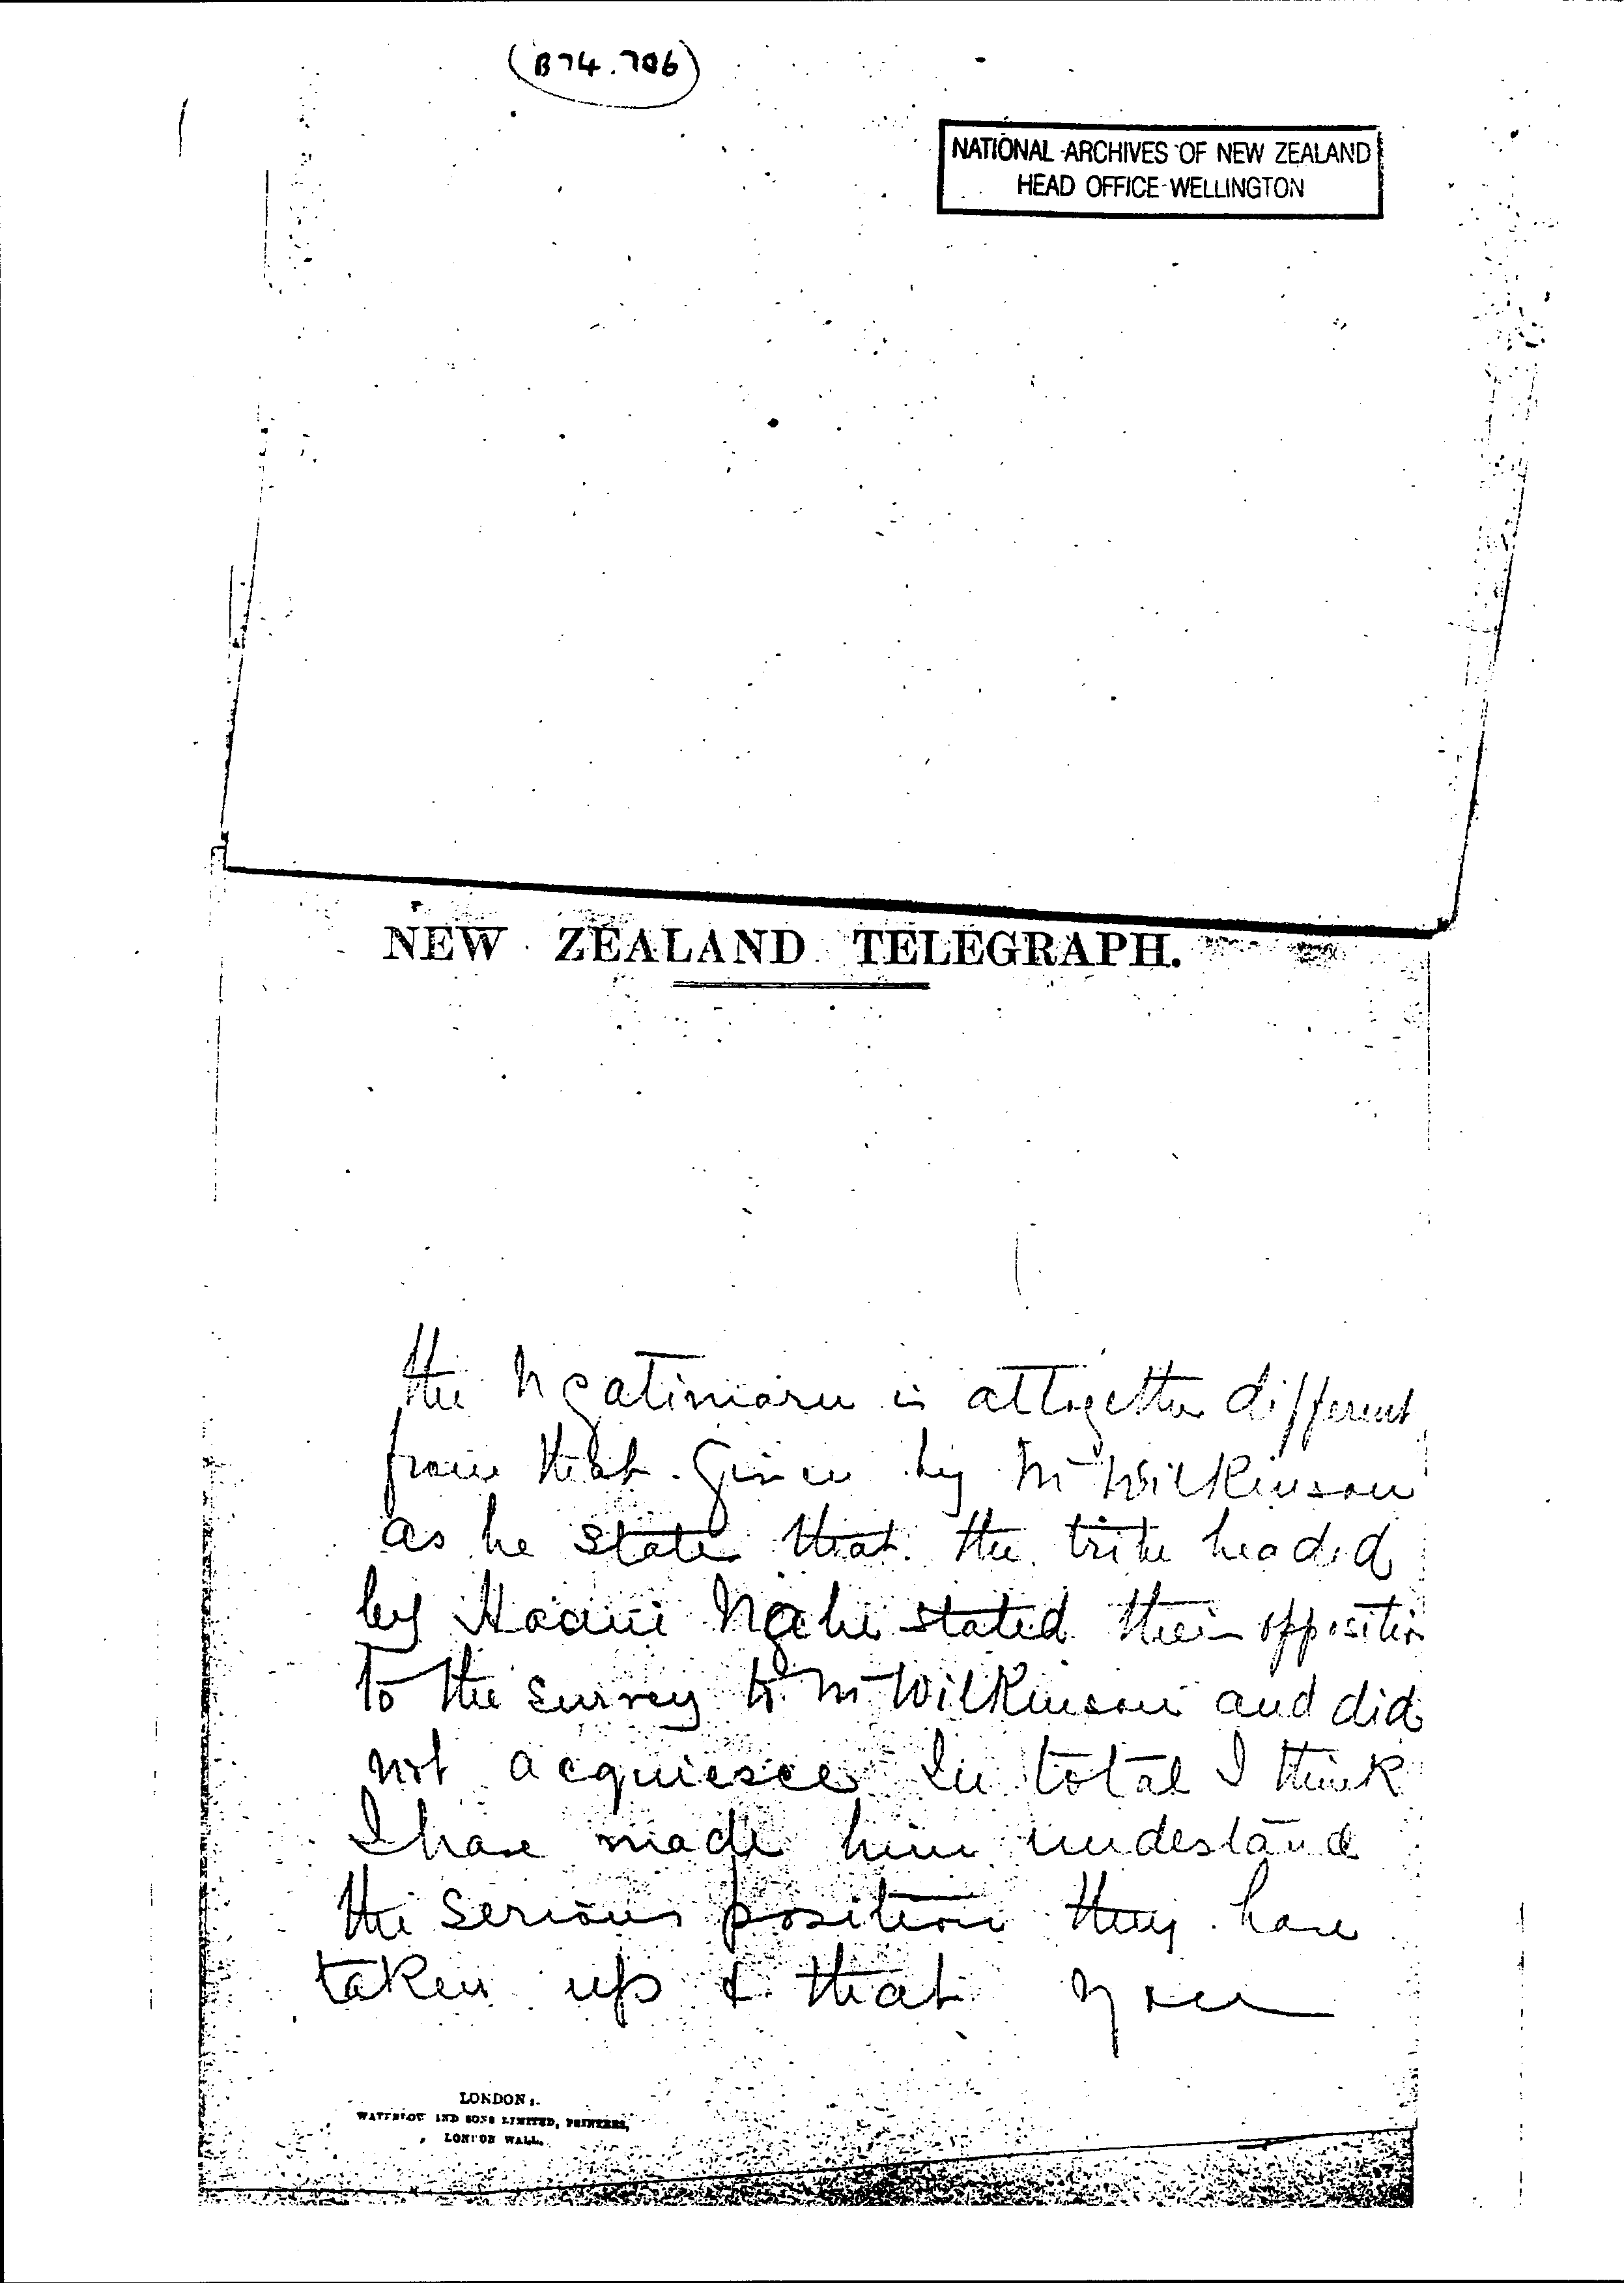 (B74.706)
NATIONAL ARCHIVES OF NEW ZEALAND
HEAD OFFICE WELLINGTON
NEW ZEALAND TELEGRAPH.
the Ngatimaru is altogether different
from that given by Mr Wilkinson
as he states that the tribe headed
by Haani Nahe stated their opposition
to the survey to Mr Wilkinson and did
not acquiesce In total I think
I have made him understand
the serious position they have
taken up & that you
LONDON:
WATERLOW AND SONS LIMITED, PRINTERS,
LONDON WALL.